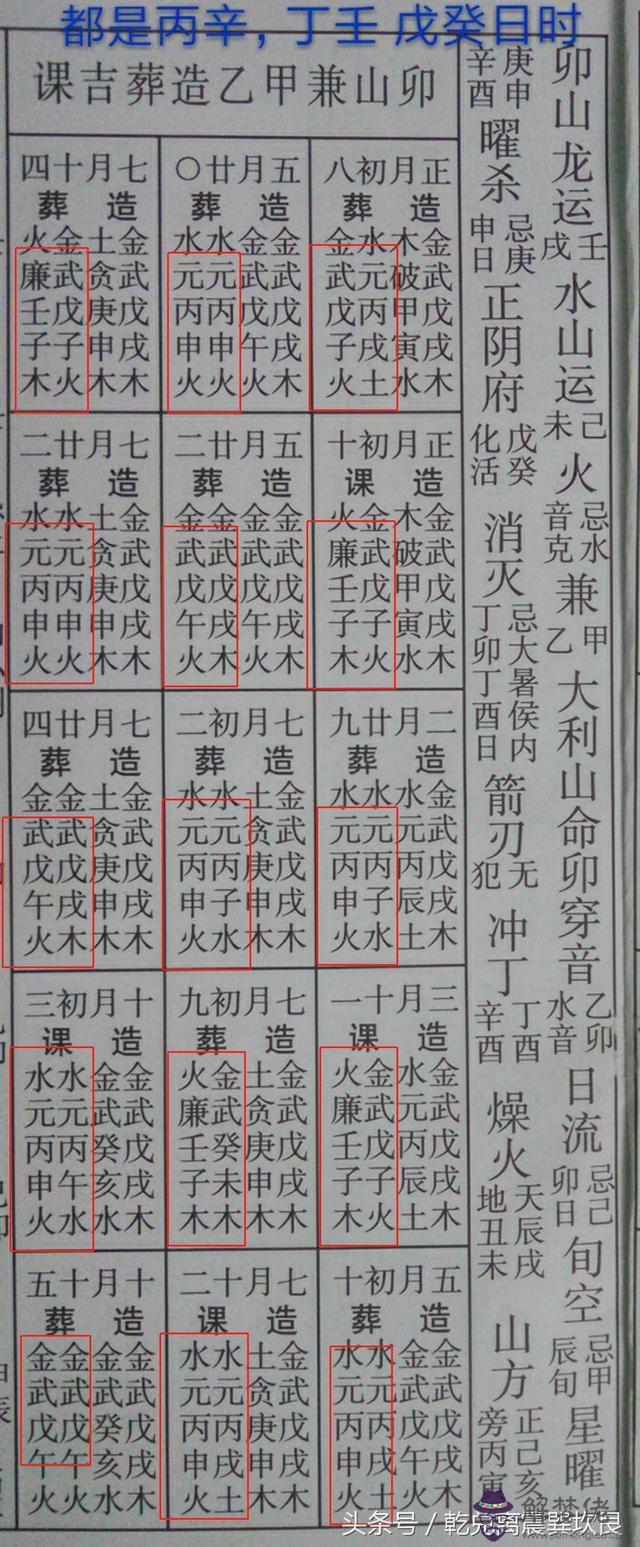 都是丙辛，丁壬 戊癸日时
卯山龙运壬戌水山运己未火忌水音克兼甲乙大利山命卯穿音乙卯水音日流忌己卯日旬空忌甲辰旬星曜
庚申辛酉曜杀忌庚申日正阴府戊癸化活消灭忌大暑侯内丁卯丁酉日箭刃无犯冲丁丁酉辛酉燥火天辰戌地丑未山方正己亥旁丙寅
卯山兼甲乙造葬吉课
正月初八
造葬
金武戊戌木
木破甲寅水
水元丙戌土
金武戊子火
正月初十
造课
金武戊戌木
木破甲寅水
金武戊子火
火廉壬子木
二月廿九
造葬
金武戊戌木
水元丙辰土
水元丙子水
水元丙申火
三月十一
造课
金武戊戌木
水元丙辰土
金武戊子火
火廉壬子木
五月初十
造葬
金武戊戌木
金武戊午火
水元丙戌土
水元丙申火
五月廿〇
造葬
金武戊戌木
金武戊午火
水元丙申火
水元丙申火
五月廿二
造葬
金武戊戌木
金武戊午火
金武戊戌木
金武戊午火
七月初二
造葬
金武戊戌木
土贪庚申木
水元丙子水
水元丙申火
七月初九
造葬
金武戊戌木
土贪庚申木
金武癸未木
火廉壬子木
七月十二
造课
金武戊戌木
土贪庚申木
水元丙戌土
水元丙申火
七月十四
造葬
金武戊戌木
土贪庚申木
金武戊子火
火廉壬子木
七月廿二
造葬
金武戊戌木
土贪庚申木
水元丙申火
水元丙申火
七月廿四
造葬
金武戊戌木
土贪庚申木
金武戊戌木
金武戊午火
十月初三
造课
金武戊戌木
金武癸亥水
水元丙午水
水元丙申火
十月十五
造葬
金武戊戌木
金武癸亥水
金武戊午火
金武戊午火
解梦佬
头条号 / 乾兑离震巽坎艮